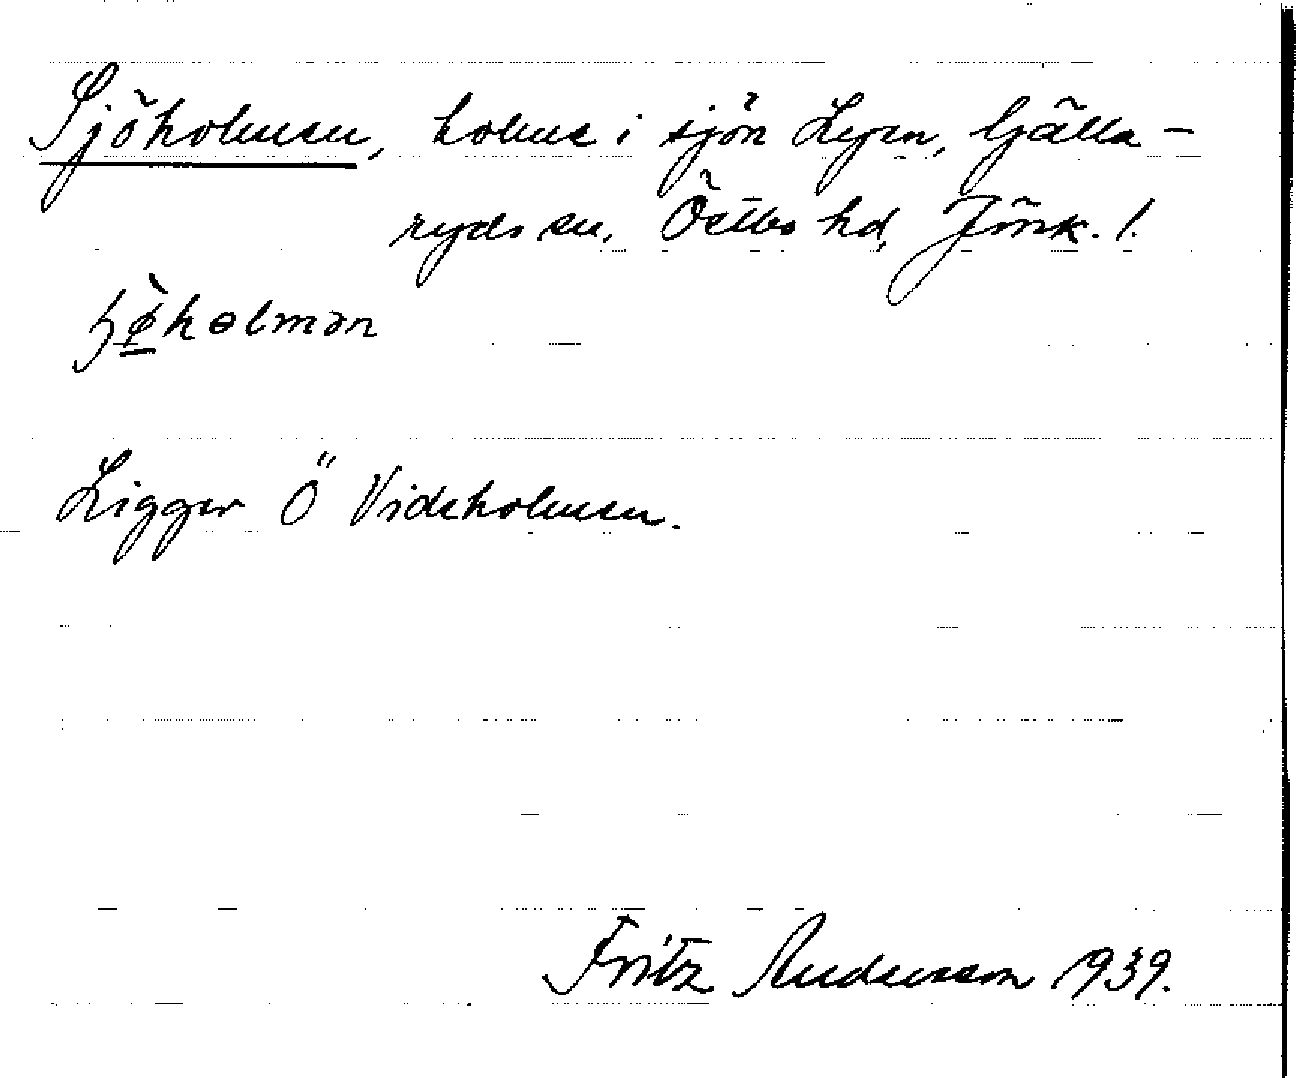 Sjöholmen, holme i sjön Lyen, Gälla-
ryds sn, Östbo hd, Jönk. l.
ɧø̀hɵlmən
Ligger Ö Videholmen.
Fritz Andersson 1939.